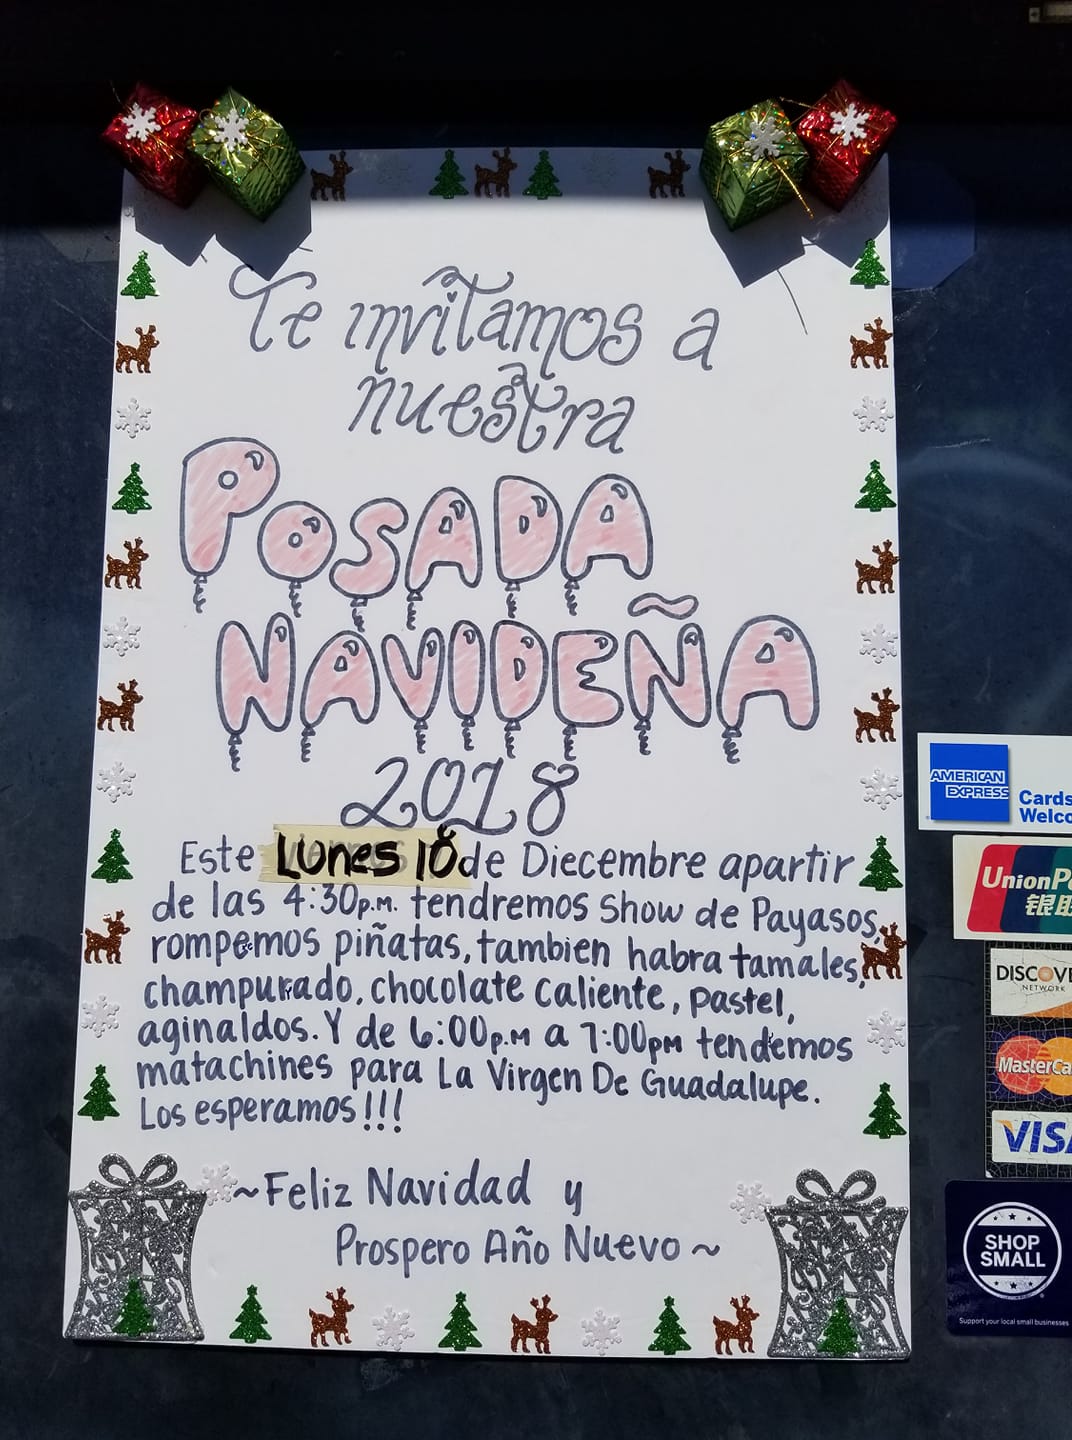 Te invitamos a
nuestra
POSADA
NAVIDEÑA
2018
Este Lunes 10 de Diecembre apartir
de las 4:30p.m. tendremos show de Payasos,
rompemos piñatas, tambien habra tamales,
champurado, chocolate caliente, pastel,
aginaldos. Y de 6:00p.m a 7:00pm tendemos
matachines para La Virgen De Guadalupe.
Los esperamos!!!
~Feliz Navidad y
Prospero Año Nuevo~
AMERICAN
EXPRESS
Cards
Welco
UnionPa
银联
DISCOVE
NETWORK
MasterCa
VISA
SHOP
SMALL
Support your local small businesses